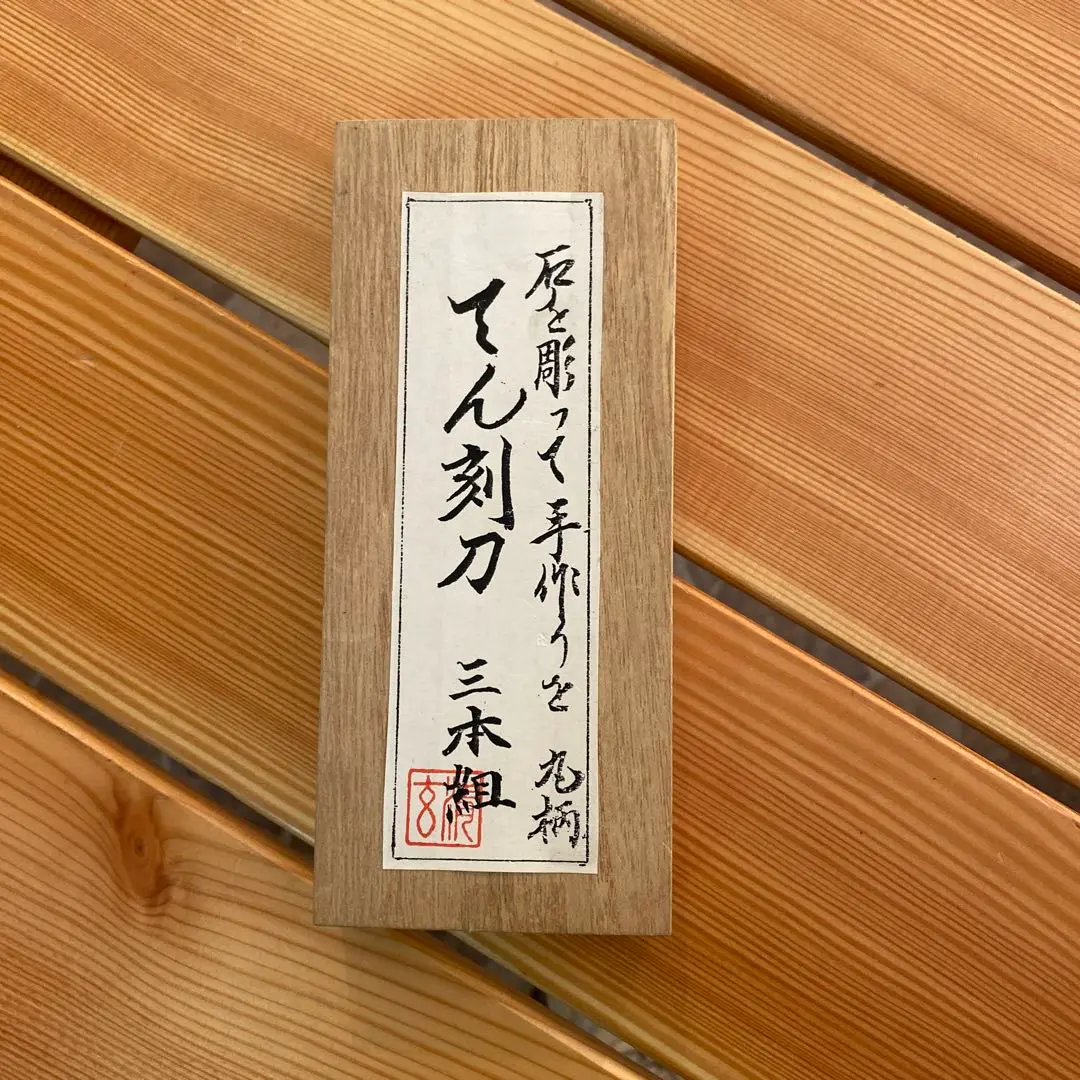 石を彫って手作りを 丸柄
てん刻刀 三本組
玄